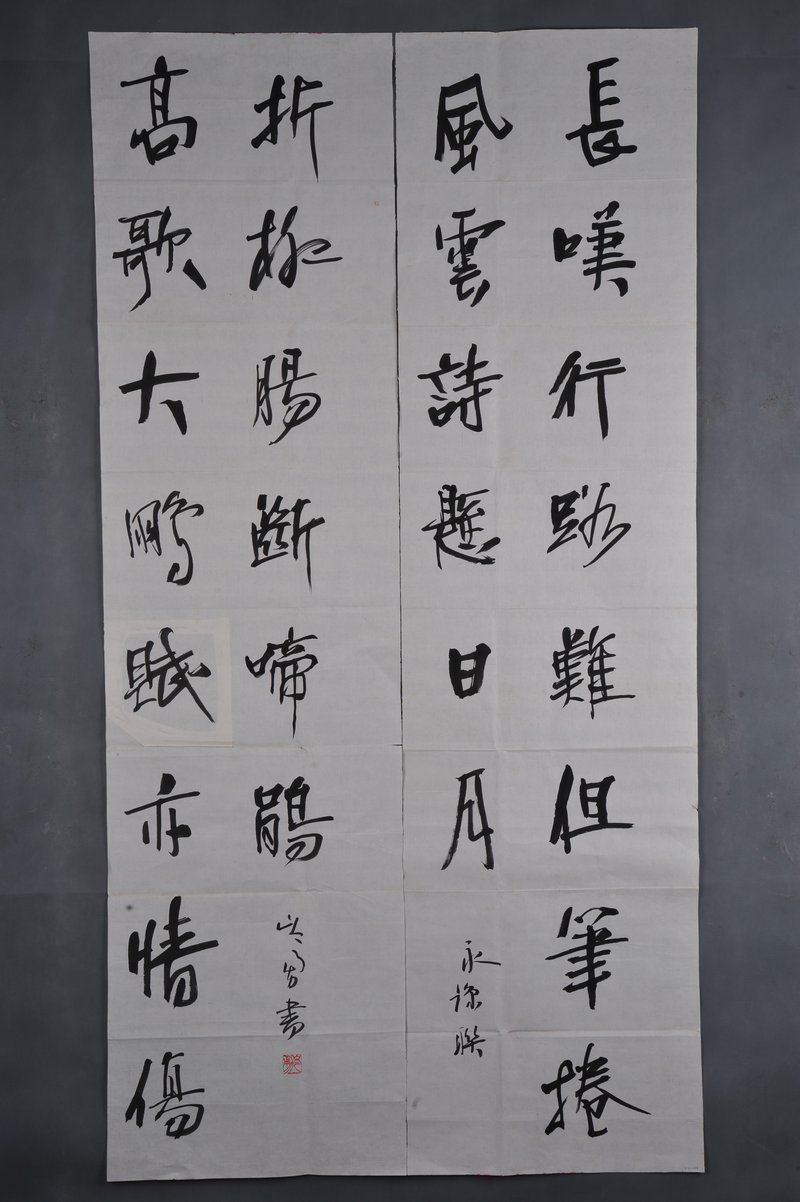 長嘆行路難但筆捲
風雲詩懸日月
永聯
高歌大鵬賦亦情傷
折柳腸斷啼鵑
書